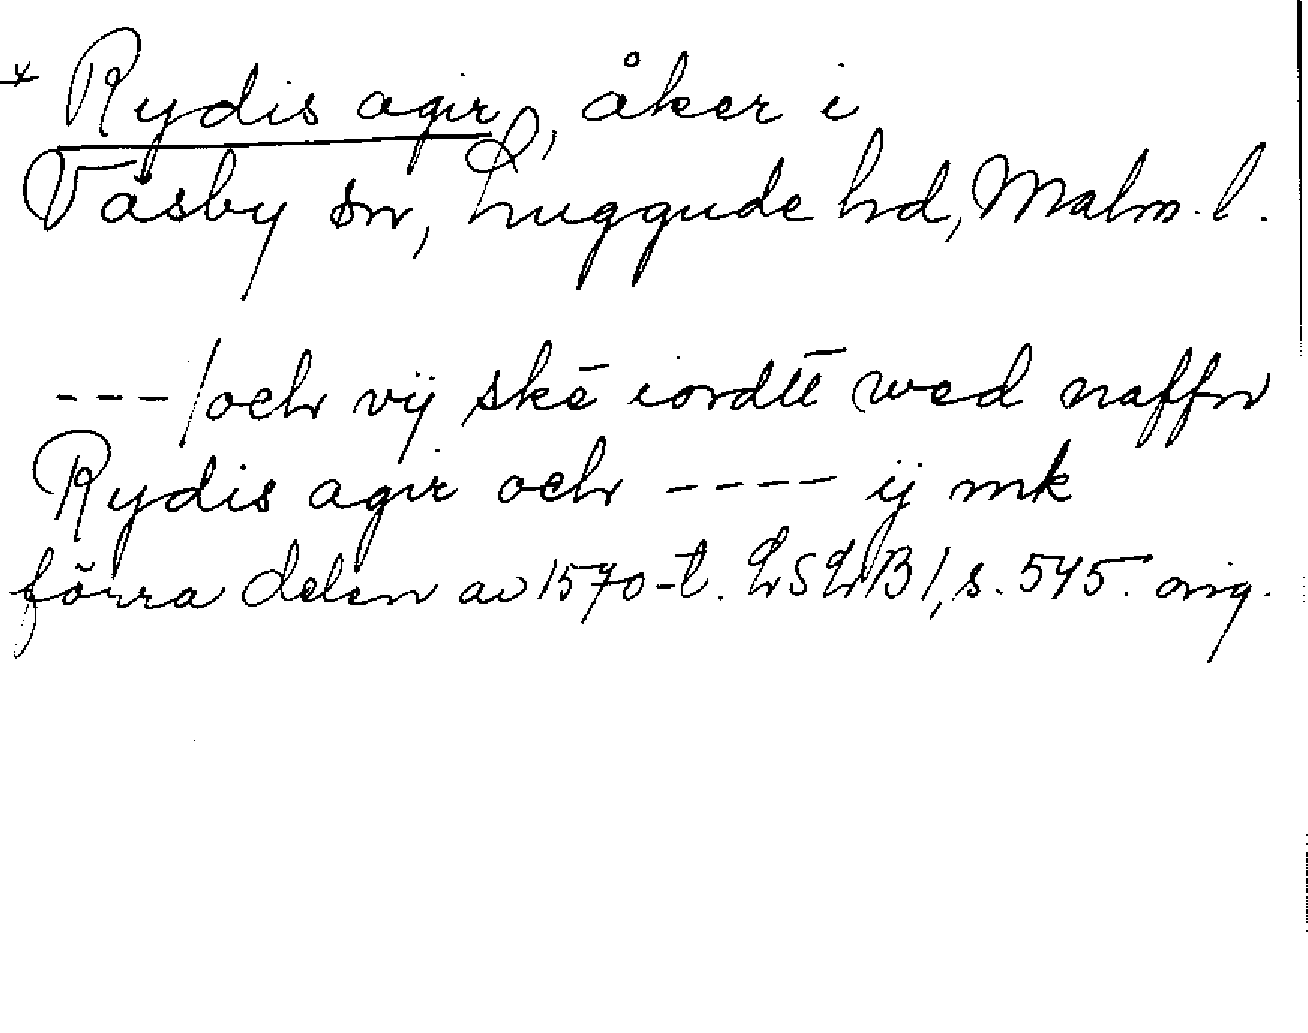 * Rydis agir, åker i
Väsby sn, Luggude hd, Malm. l.
---/och vij skē iordtē wed naffn
Rydis agir och ---- ij mk
förra delen av 1570-t. LSLB 1, s. 545. orig.